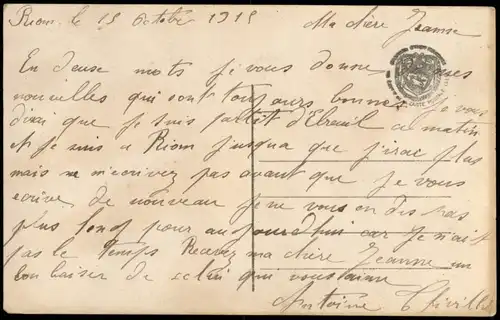 Riom, le 15 Octobre 1915
Ma chère Jeanne
En deuse mots je vous donne mes
nouvelles qui sont toujours bonnes je vous
dirai que je suis partit d'Ebreuil ce matin
et je suis a Riom jusqua que j'irai plus
mais ne m'ecrivez pas avant que je vous
ecrive de nouveau je ne vous en dis pas
plus long pour aujourdhui car je n'ait
pas le temps Recevez ma chère Jeanne un
bon baiser de celui qui vous aime
Antoine
CARTE POSTALE